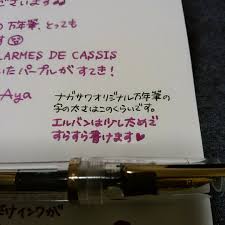 ございます
の万年筆、とっても
す
LARMES DE CASSIS
いたパープルが すてき!
Aya
ナガサワオリジナル万年筆の
字の太さはこのくらいです。
エルバンは少しためで
すらすら書けます♥
だけインクが